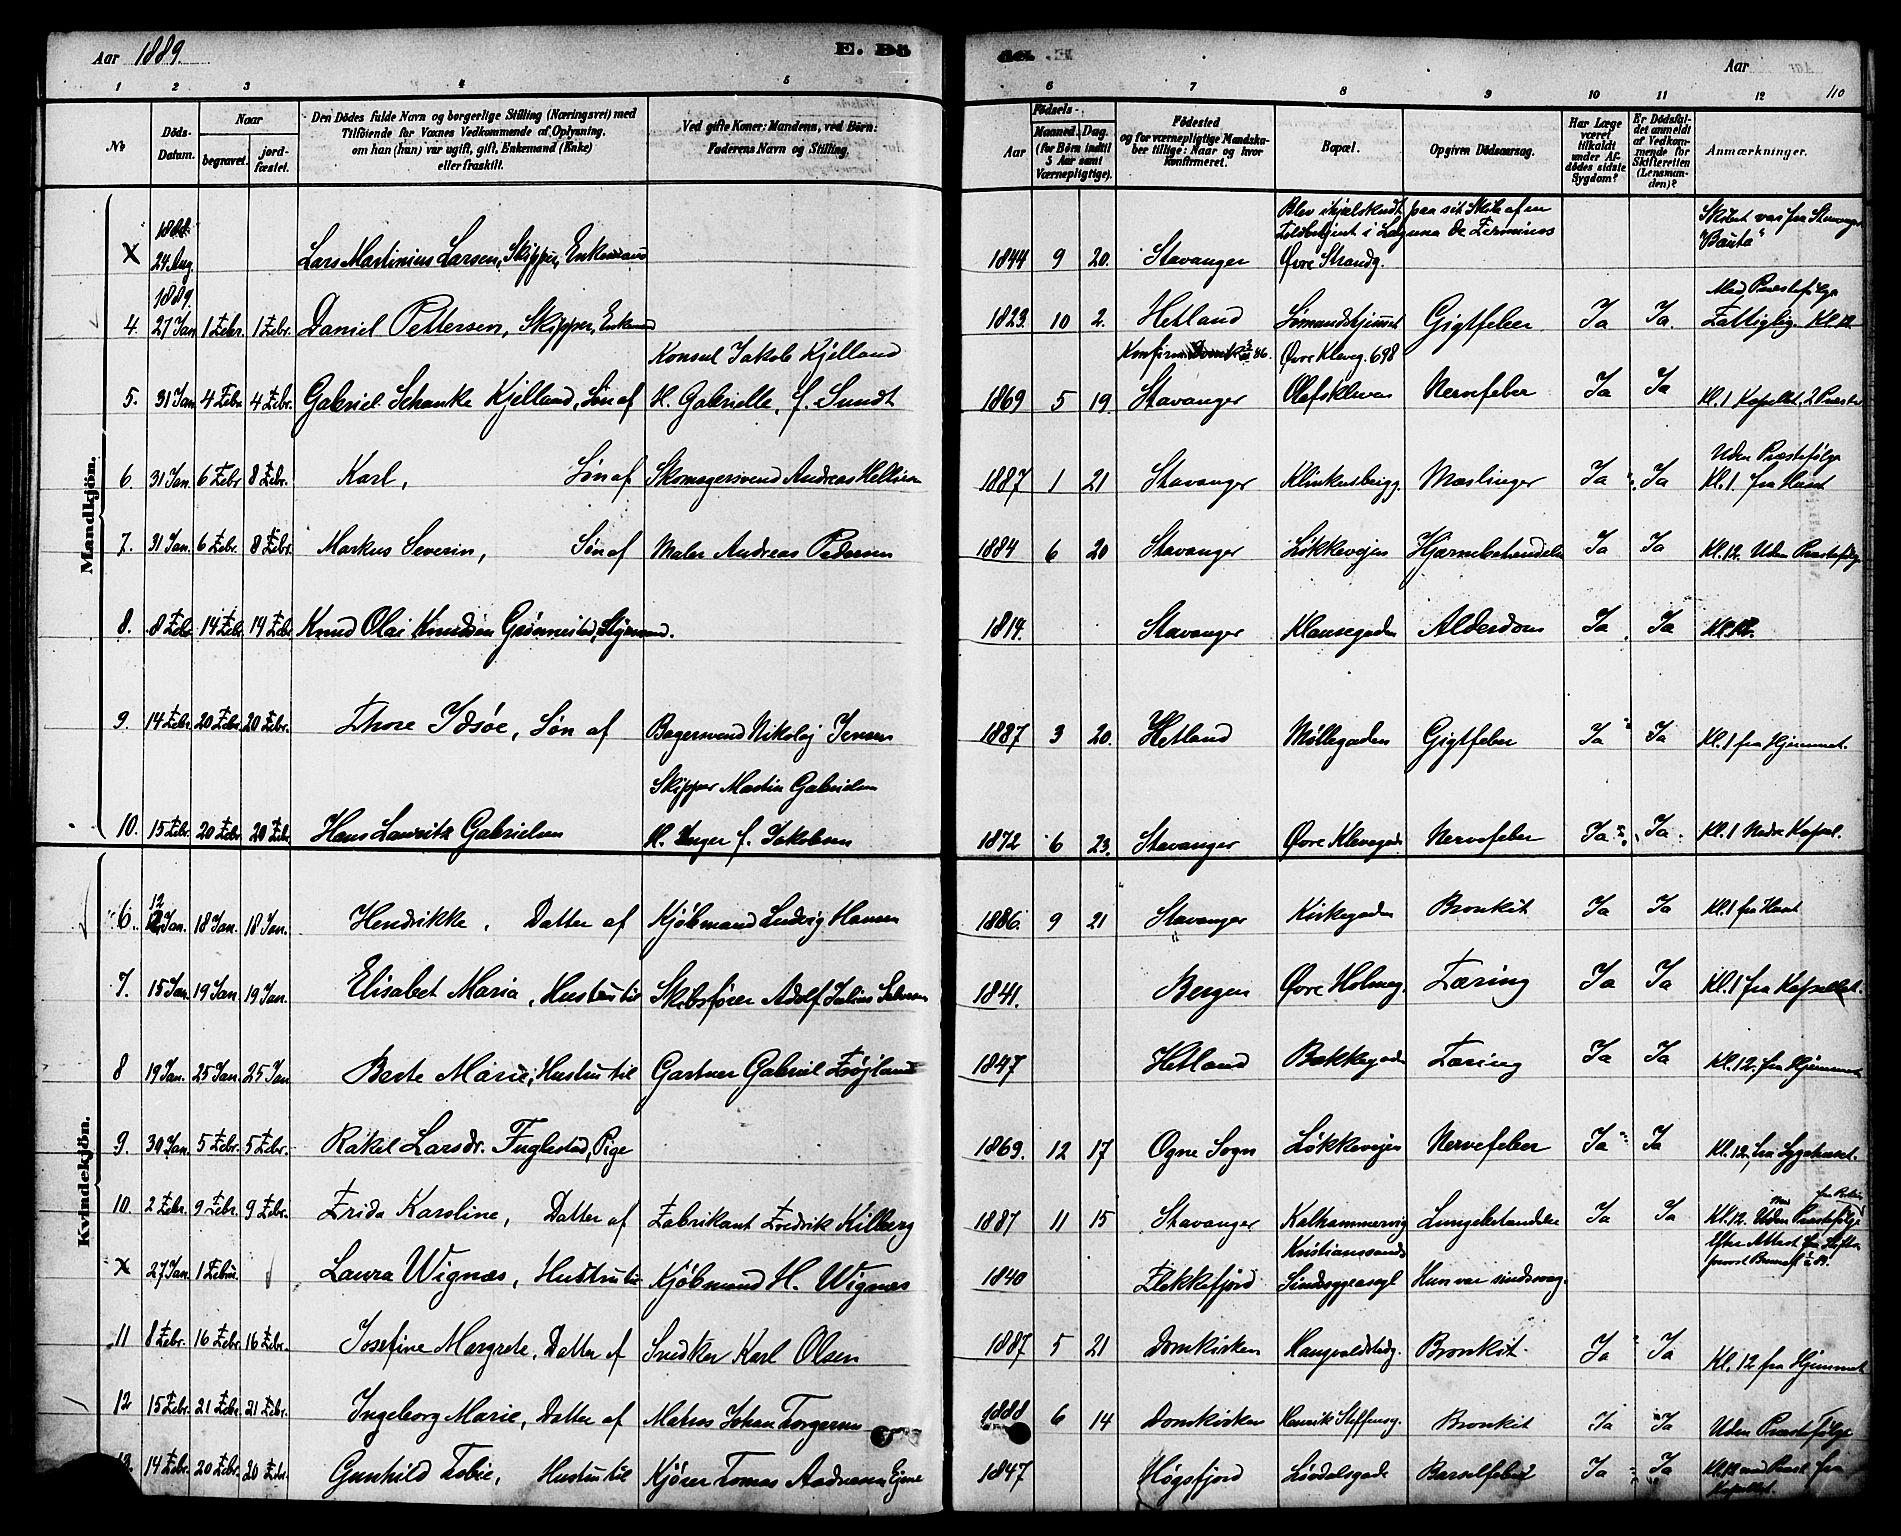 Aar 1889. E. Dö
de. Aar 110
1 2 3 4 5
6 7 8 9 10 11 12
No
Döds-Datum.
Naar
begravet.
jord-fæstet.
Den Dödes fulde Navn og borgerlige Stilling (Næringsvei) med
Tilföiende for Voxnes Vedkommende af Oplysning,
om han (hun) var ugift, gift, Enkemand (Enke)
eller fraskilt.
Ved gifte Koner: Mandens, ved Börn:
Faderens Navn og Stilling.
Födsels-
Aar
Maaned. Dag.
(for Börn indtil
5 Aar samt
Værnepligtige).
Födested
og for værnepligtige Mandska-
ber tillige: Naar og hvor
konfirmeret.
Bopæl.
Opgiven Dödsaarsag.
Har Læge
været
tilkaldt
under Af-
dödes sidste
Sygdom?
Er Dödsfal-
det anmeldt
af Vedkom-
mende for
Skifteretten
(Lensman-
den)?
Anmærkninger.
Mandkjön.
1888
X 24 Aug. Lars Martinius Larsen, Skipper, Enkemand 1844 9 20. Stavanger Øvre Strandg.
Blev ihjelskudt paa sit Skib af en
Toldbetjent i Laguna de Terminos
Skibet var fra Stavanger
"Bauta"
1889.
4. 27 Jan 1 Febr. 1 Febr. Daniel Pettersen, Skipper, Enkemand 1823. 10 2. Hetland Sømandshjemmet Gigtfeber Ja Ja. Med Præstefølge
Fattiglig. Kl. 12
Konsul Jakob Kjelland
Øvre Kleveg. 698
5. 31 Jan 4 Febr 4 Febr. Gabriel Schanke Kjelland, Søn af H. Gabrielle, f. Sundt 1869 5 19. Stavanger Olafskleven Nervefeber Ja Ja Kl. 1 Kapellet, 2 Præster
6. 31 Jan 6 Febr 8 Febr. Karl, Søn af Skomagersvend Andreas 1887 1 21 Stavanger Klinkenbergg. Mæslinger Ja Ja Uden Præstefølge
Kl. 1. fra Huset
7. 31 Jan 6 Febr. 8 Febr. Markus Severin, Søn af Maler Andreas Pedersen 1884 6 20 Stavanger Løkkeveien Hjærnebetændelse Ja Ja Kl. 12. Uden Præstefølge
8. 8 Febr 14 Febr. 14 Febr Knud Olai Knudsen Grønnestad, Styrmand. 1814. Stavanger Klausegaden Alderdom Ja Ja Kl. 12.
9. 14 Febr. 20 Febr. 20 Febr. Thore Idsøe, Søn af Bagersvend Nikolaj Jensen 1887 3 20. Hetland Møllegaden Gigtfeber Ja Ja Kl. 1 fra Hjemmet.
Skipper Martin Gabrielsen
10. 15 Febr. 20 Febr. 20 Febr. Hans Lauritz Gabrielsen H. Inger f. Jakobsen 1872 6 23. Stavanger Øvre Klevegade Nervefeber Ja Ja. Kl. 1 Nedre Kapel.
Kvindekjön.
6. 12 Jan. 18 Jan. 18 Jan. Hendrikke, Datter af Kjøbmand Ludvig Hansen 1886. 9 21 Stavanger Kirkegaden Bronkit Ja Ja Kl. 1 fra Huset
7. 15 Jan. 19 Jan. 19 Jan. Elisabet Maria, Hustru til Skibsfører Adolf Julius 1841. Bergen Øvre Holmeg. Tæring Ja Ja Kl. 1 fra Kapellet.
8 19 Jan. 25 Jan. 25 Jan Berte Marie, Hustru til Gartner Gabriel Frøjland 1847 Hetland Bakkegaden Tæring Ja Ja Kl. 12. fra Hjemmet
9. 30 Jan. 5 Febr. 5 Febr. Rakel Larsdr. Fuglestad, Pige 1869. 12 17 Ogne Sogn Løkkeveien Nervefeber Ja Ja Kl. 12, fra Sygehuset.
10. 2 Febr. 9 Febr. 9 Febr. Frida Karoline, Datter af Fabrikant Fredrik Kilberg 1887 11 15 Stavanger Kalhammervig Lungebetændelse Ja Ja Kl. 12. Uden Præstefølge
X 27 Jan. 1 Febru. Laura Wignæs, Hustru til Kjøbmand H. Wignæs 1840 Flekkefjord Kristianssands
Sindsygeasyl Hun var sindssvag. Efter Attest fra
11 8 Febr. 16 Febr. 16 Febr. Josefine Margrete, Datter af Snedker Karl Olsen 1887 5 21 Domkirken Haugvaldstadg. Bronkit. Ja Ja Kl. 12 fra Hjemmet
12 15 Febr. 21 Febr. 21 Febr. Ingeborg Marie, Datter af Matros Johan Torgersen 1888 6 14 Domkirken Henrik Steffensg. Bronkit Ja Ja Uden Præstefølge
13. 14 Febr. 20 Febr. 20 Febr. Gunhild Tobie, Hustru til Kjører Tomas Andreasen 1847 Høgsfjord Løvdalsgade Barselfeber Ja Ja